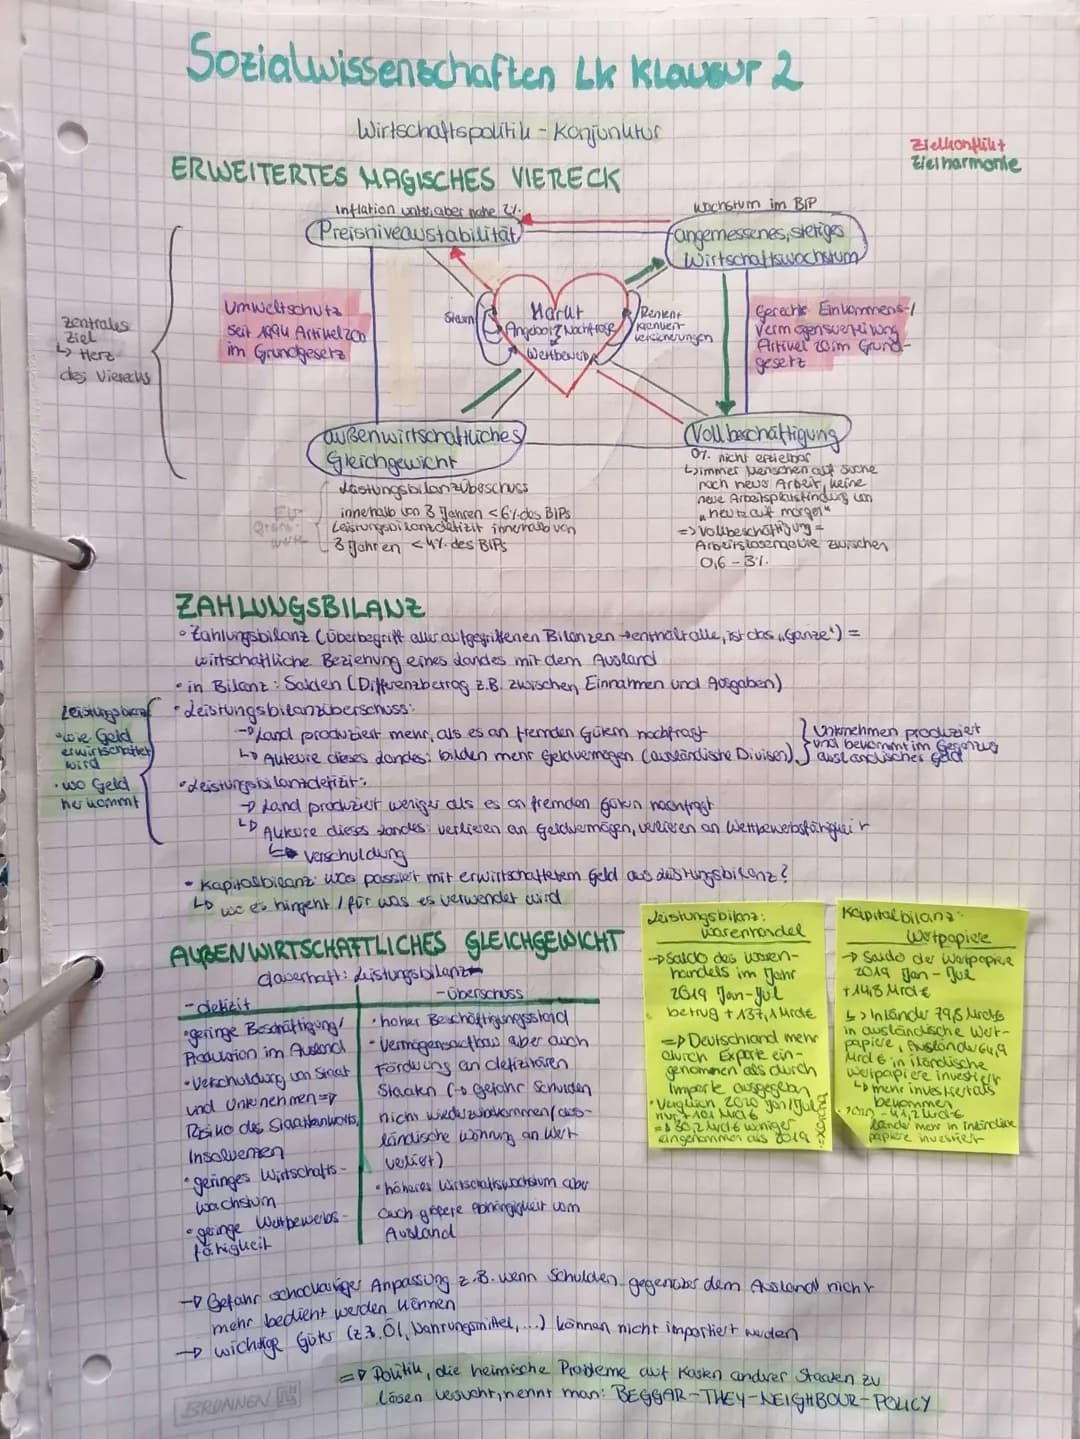 Sozialwissenschaften Lk Klausur 2
Wirtschaftspolitik - Konjunktur
Zielkonflikt
Zielharmonie
ERWEITERTES MAGISCHES VIERECK
Inflation unter, aber nahe 2%
Preisniveaustabilität
Wachstum im BIP
angemessenes, stetiges
Wirtschaftswachstum
zentrales
Ziel
↳ Herz
des Vierecks
Umweltschutz
seit 1994 Artikel 20a
im Grundgesetz
Steuern
Markt
Angebot & Nachfrage
Wettbewerb
Renten
Kranken-
versicherungen
Gerechte Einkommens-/
Vermögensverteilung
Artikel 20 im Grund-
gesetz
außenwirtschaftliches
Gleichgewicht
Vollbeschäftigung
Leistungsbilanzüberschuss
innerhalb von 3 Jahren < 6% des BIPs
Leistungsbilanzdefizit innerhalb von
3 Jahren < 4% des BIPs
0% nicht erzielbar
↳ immer Menschen auf Suche
nach neuer Arbeit, keine
neue Arbeitsplatzfindung von
"heute auf morgen"
=> Vollbeschäftigung =
Arbeitslosenquote zwischen
0,6 - 3%
ZAHLUNGSBILANZ
• Zahlungsbilanz (Überbegriff aller aufgegriffenen Bilanzen → enthält alle, ist das "Ganze") =
wirtschaftliche Beziehung eines Landes mit dem Ausland
• in Bilanz: Salden (Differenzbetrag z.B. zwischen Einnahmen und Ausgaben)
• Leistungsbilanzüberschuss:
→ Land produziert mehr, als es an fremden Gütern nachfragt
↳ Akteure dieses Landes: bilden mehr Geldvermögen (ausländische Divisen)
Unternehmen produziert
und bekommt im Gegenzug
ausländisches Geld
Leistungsbilanz
• wie Geld
erwirtschaftet
wird
• wo Geld
herkommt
• Leistungsbilanzdefizit:
→ Land produziert weniger als es an fremden Gütern nachfragt
↳ Akteure dieses Landes: verlieren an Geldvermögen, verlieren an Wettbewerbsfähigkeit
↳ Verschuldung
• Kapitalbilanz: was passiert mit erwirtschaftetem Geld aus Leistungsbilanz?
↳ wo es hingeht / für was es verwendet wird
AUßENWIRTSCHAFTLICHES GLEICHGEWICHT
dauerhaft: Leistungsbilanz-
- defizit
- überschuss
• geringe Beschäftigung/
Produktion im Ausland
• Verschuldung von Staat
und Unternehmen =>
Risiko des Staatsbankrotts,
Insolvenzen
• geringes Wirtschafts-
wachstum
• geringe Wettbewerbs-
fähigkeit
• hoher Beschäftigungsstand
• Vermögensaufbau aber auch
Förderung an defizitären
Staaten (→ Gefahr Schulden
nicht wiederzubekommen/aus-
ländische Währung an Wert
verliert)
• höheres Wirtschaftswachstum aber
auch größere Abhängigkeit vom
Ausland
Leistungsbilanz:
Warenhandel
→ Saldo des Waren-
handels im Jahr
2019 Jan-Jul
betrug + 137,1 Mrd€
=> Deutschland mehr
durch Exporte ein-
genommen als durch
Importe ausgegeben
• Vergleich 2020 Jan/Jul
nur + 101 Mrd €
=> 36,2 Mrd € weniger
eingenommen als 2019
Kapitalbilanz:
Wertpapiere
→ Saldo der Wertpapiere
2019 Jan - Jul
+ 14,8 Mrd €
↳ Inländer 79,8 Mrd €
in ausländische Wert-
papiere, Ausländer 64,9
Mrd € in inländische
Wertpapiere investiert
↳ mehr investiert als
bekommen
- 41,2 Mrd €
länder mehr in inländische
papiere investiert
→ Gefahr schockartiger Anpassung z.B. wenn Schulden gegenüber dem Ausland nicht
mehr bedient werden können
→ wichtige Güter (z.B. Öl, Nahrungsmittel, ...) können nicht importiert werden
=> Politik, die heimische Probleme auf Kosten anderer Staaten zu
lösen versucht, nennt man: BEGGAR-THEY-NEIGHBOUR-POLICY
BRUNNEN